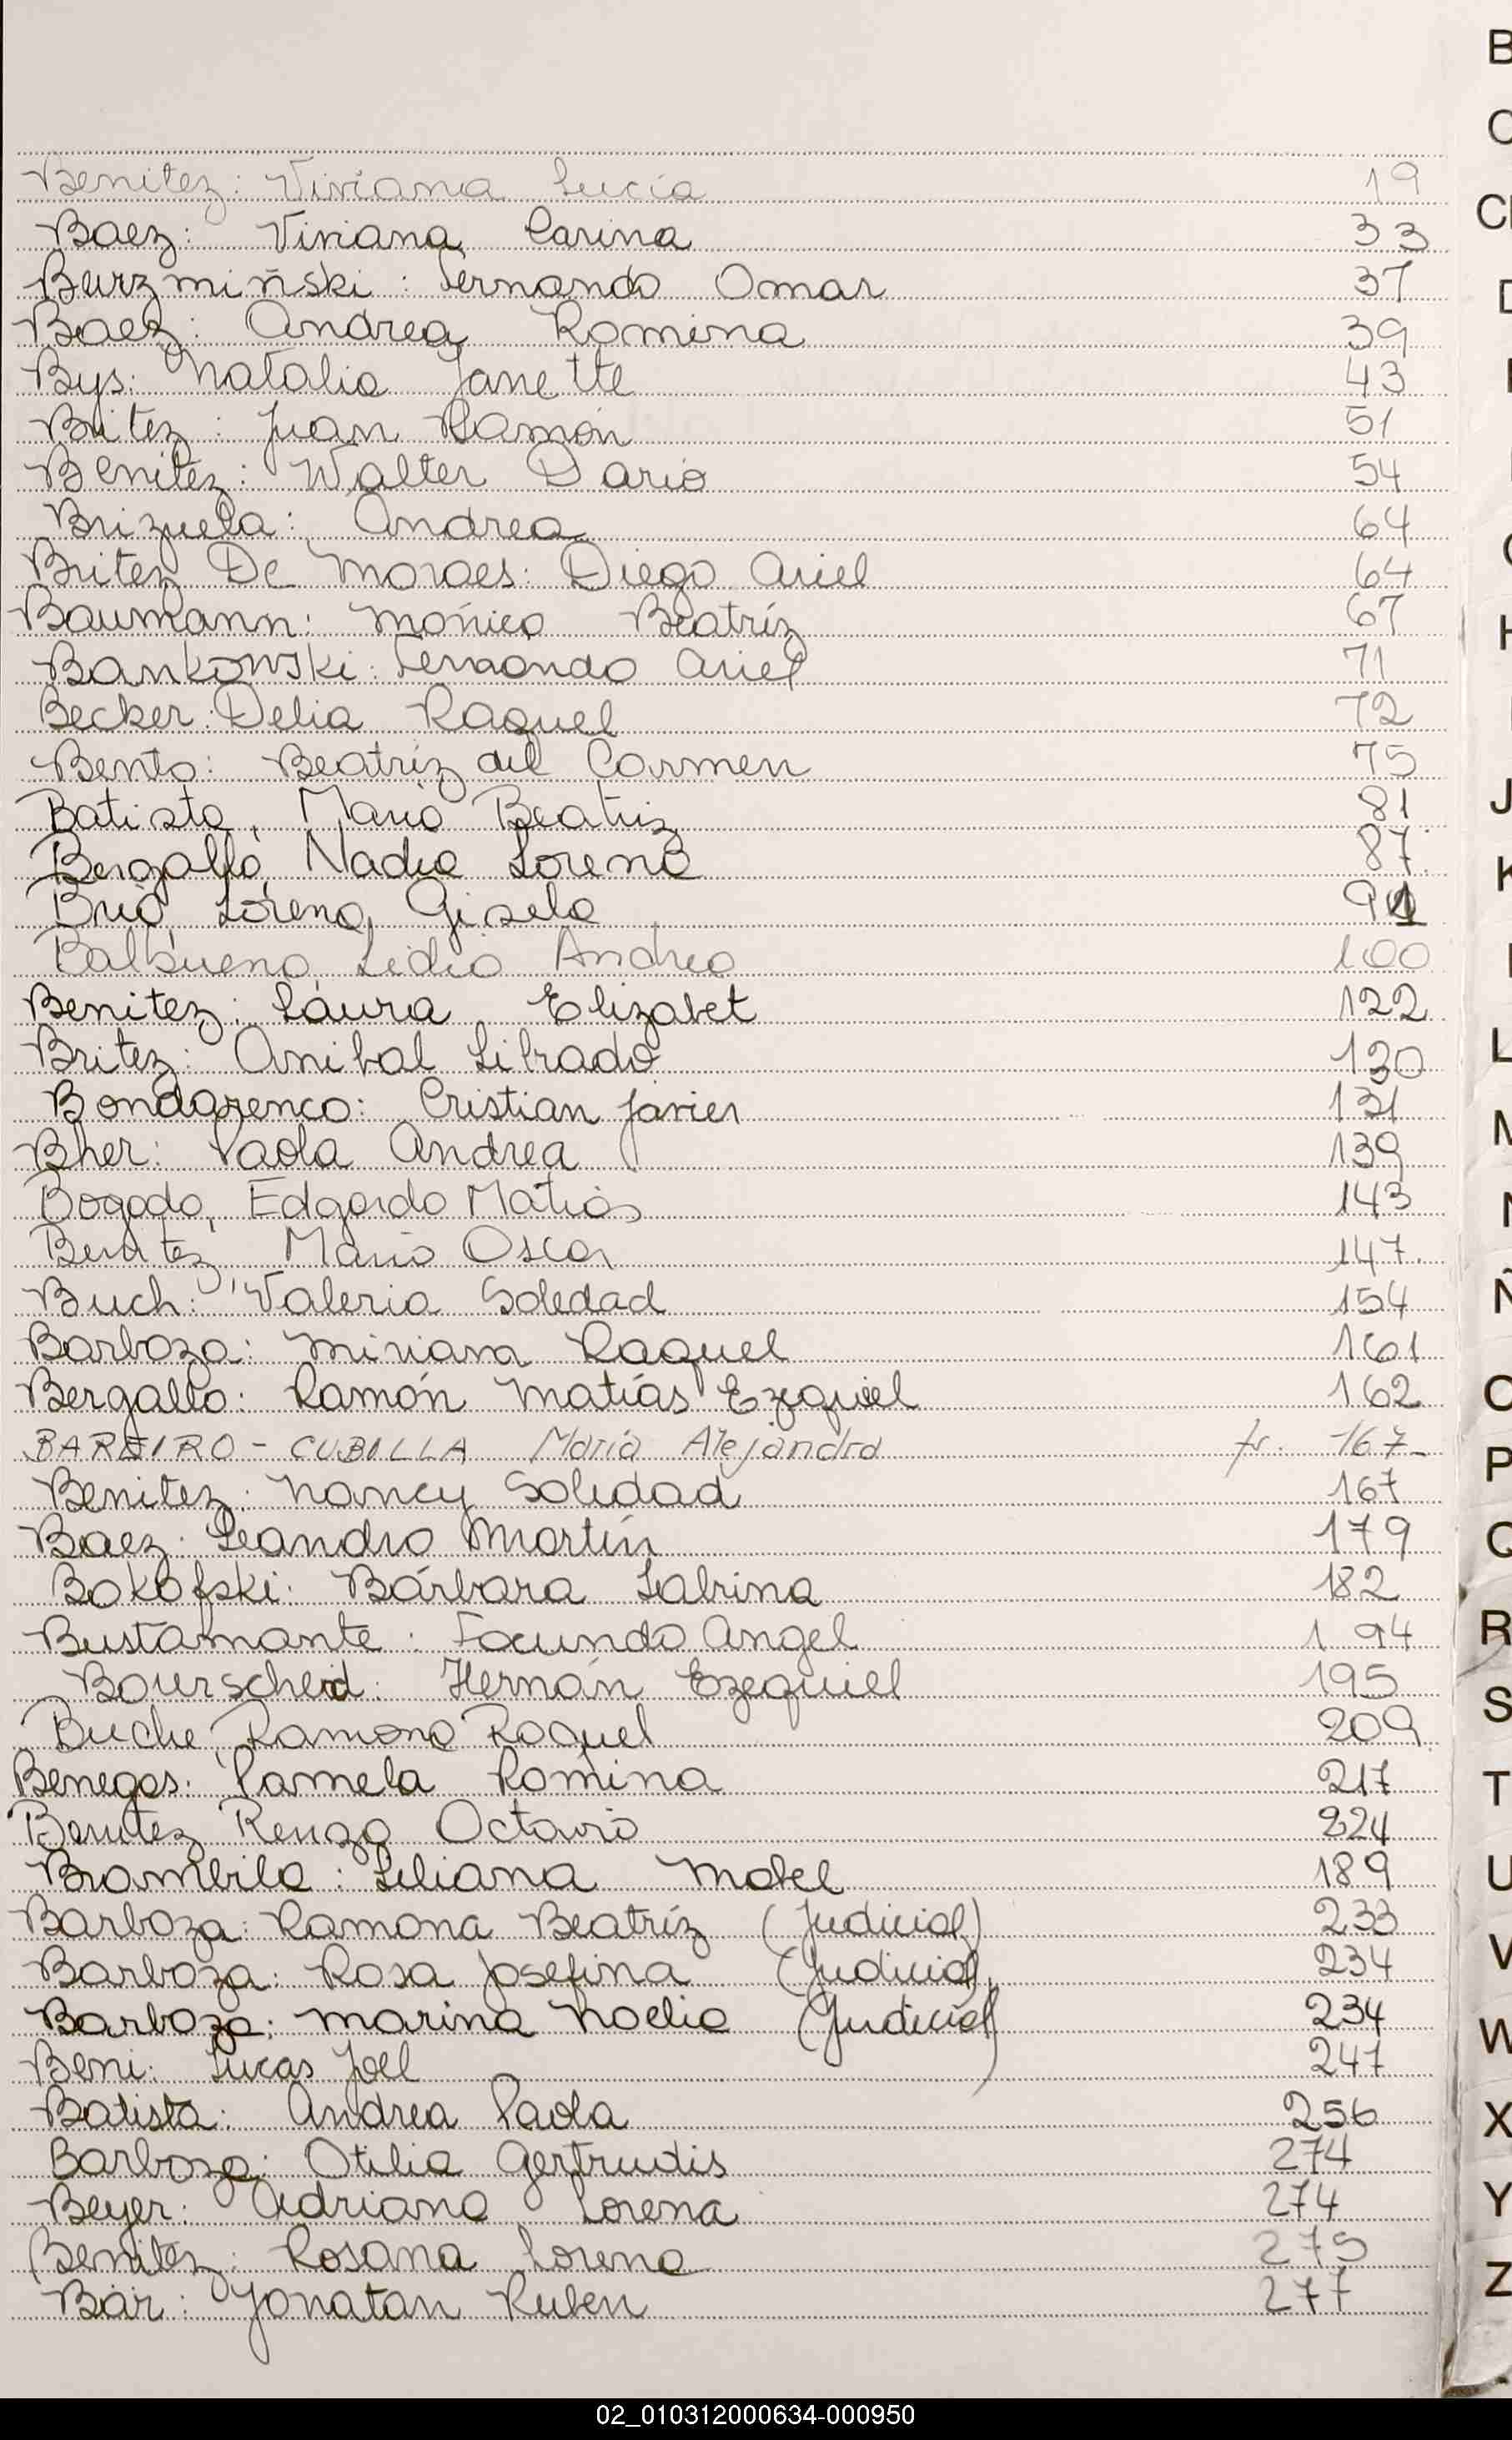 Benitez: Viviana Lucía 19
Baez: Viviana Carina 33
Burzmiñski: Fernando Omar 37
Baez: Andrea Romina 39
Bys: Natalia Janette 43
Britez: Juan Ramón 51
Benitez: Walter Dario 54
Brizuela: Andrea 64
Britez De Moraes: Diego Ariel 64
Baumann: Mónica Beatríz 67
Bankowski: Fernando Ariel 71
Becker: Delia Raquel 72
Bento: Beatríz del Carmen 75
Batista, María Beatriz 81
Bergallo, Nadia Lorena 87
Lorena Gisela
Balbuena, Lidia Andrea 100
Benitez: Laura Elizabet 122
Britez: Anibal Librado 130
Bondarenco: Cristian Javier 131
Bher: Paola Andrea 139
Bogado, Edgardo Matias 143
Benitez, Mario Oscar 147
Buch: Valeria Soledad 154
Barboza: Miriam Raquel 161
Bergallo: Ramón Matías Ezequiel 162
BAREIRO - CUBILLA María Alejandra fr. 167
Benitez: Nancy Soledad 167
Baez: Leandro Martín 179
Bokofski: Bárbara Sabrina 182
Bustamante: Facundo Angel 194
Bourscheid: Hernán Ezequiel 195
Buche, Ramona Raquel 209
Benegas: Pamela Romina 217
Benitez Renzo Octavio 224
Brambila: Liliana Mabel 189
Barboza: Ramona Beatríz (Judicial) 233
Barboza: Rosa Josefina (Judicial) 234
Barboza: Marina Noelia (Judicial) 234
Beni: Lucas Joel 247
Batista: Andrea Paola 256
Barboza: Otilia Gertrudis 274
Beyer: Adriana Lorena 274
Benítez: Rosana Lorena 275
Bär: Jonatan Ruben 277
B
C
CH
D
H
J
K
L
M
N
Ñ
O
P
Q
R
S
T
U
V
W
X
Y
Z
02_010312000634-000950